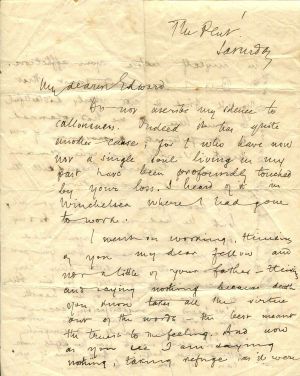 The Pent.
Saturday
My dearest Edward
Do not ascribe my silence to
callousness. Indeed it has quite
another cause; for I who have now
not a single soul living in my
past have been profoundly touched
by your loss. I heard of it in
Winchelsea where I had gone
to work.
I went on working, thinking
of you my dear fellow and
not a little of your father –
and saying nothing because death
you know takes all the virtue
out of the words – the best meant
the truest to me feeling. And now
as you see I am saying
nothing, taking refuge as it were